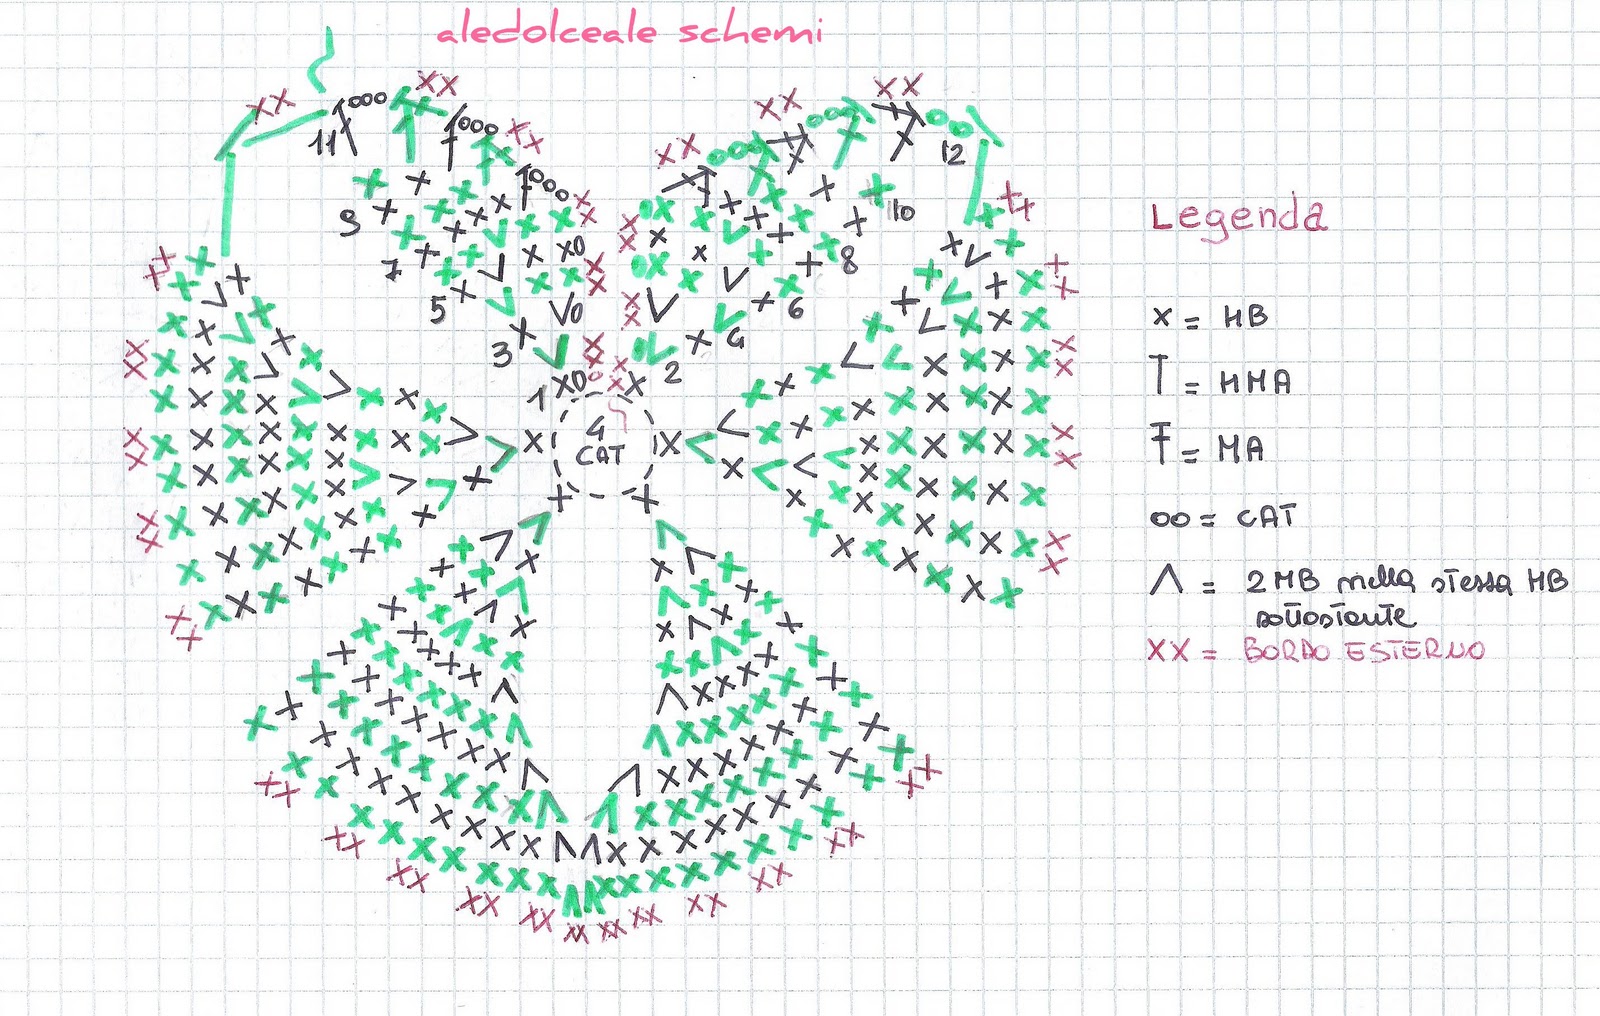 aledolceale schemi
11
12
9
10
7
8
5
6
3
4
1
2
4
CAT
Legenda
x = MB
T = MMA
Ŧ = MA
oo = CAT
Λ = 2 MB nella stessa MB
sottostante
XX = BORDO ESTERNO